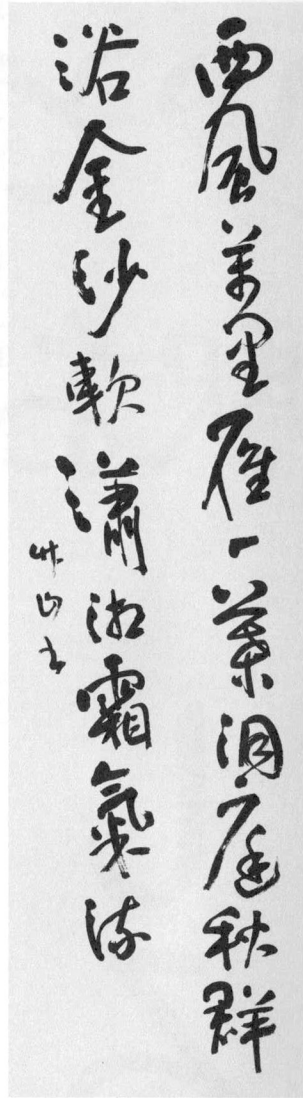 西風萬里雁一葉洞庭秋群
浴金沙軟瀟湘霜氣流
竹山書